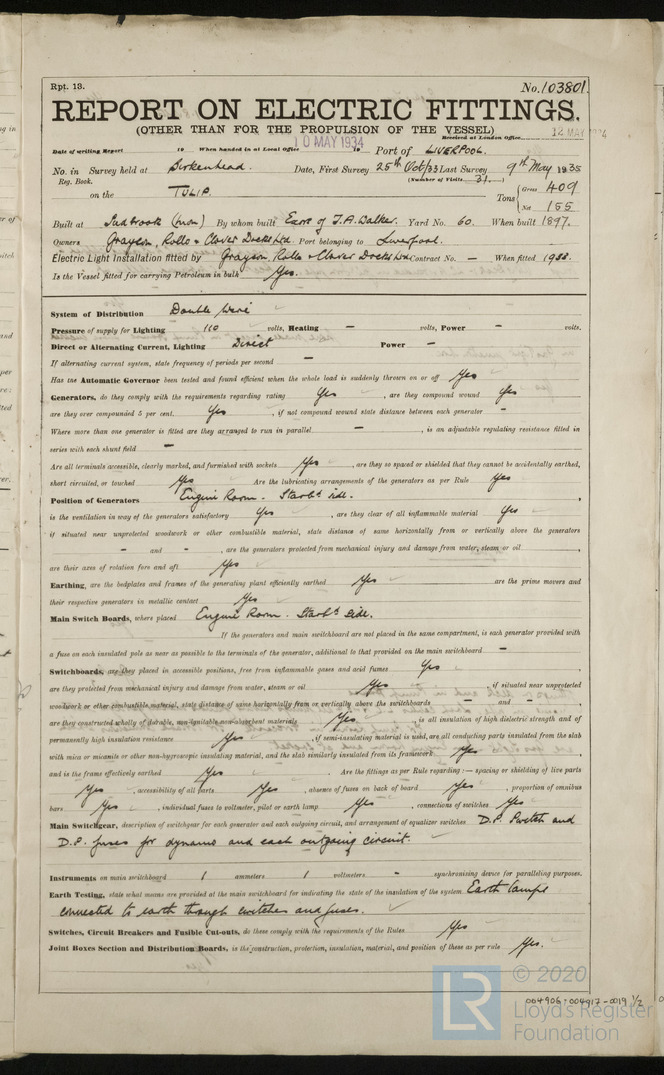 Rpt. 13. No. 103801
REPORT ON ELECTRIC FITTINGS.
(OTHER THAN FOR THE PROPULSION OF THE VESSEL)
Received at London Office 12 MAY
Date of writing Report 19 When handed in at Local Office 10 MAY 1934 19 Port of LIVERPOOL.
No. in Survey held at Birkenhead. Date, First Survey 25th Oct/33 Last Survey 9th May 1935
Reg. Book. (Number of Visits 31.)
on the TULIP. Tons { Gross 409
Net 155
Built at Sudbrook (mon) By whom built Exors of T. A. Walker. Yard No. 60. When built 1897.
Owners Grayson, Rollo & Clover Docks Ltd Port belonging to Liverpool.
Electric Light Installation fitted by Grayson, Rollo & Clover Docks Ltd Contract No. — When fitted
Is the Vessel fitted for carrying Petroleum in bulk Yes.
System of Distribution Double Wire
Pressure of supply for Lighting 110 volts, Heating — volts, Power — volts.
Direct or Alternating Current, Lighting Direct Power —
If alternating current system, state frequency of periods per second —
Has the Automatic Governor been tested and found efficient when the whole load is suddenly thrown on or off Yes
Generators, do they comply with the requirements regarding rating Yes , are they compound wound Yes
are they over compounded 5 per cent. Yes , if not compound wound state distance between each generator —
Where more than one generator is fitted are they arranged to run in parallel — , is an adjustable regulating resistance fitted in
series with each shunt field —
Are all terminals accessible, clearly marked, and furnished with sockets Yes , are they so spaced or shielded that they cannot be accidentally earthed,
short circuited, or touched Yes Are the lubricating arrangements of the generators as per Rule Yes
Position of Generators Engine Room - Starbd side.
is the ventilation in way of the generators satisfactory Yes , are they clear of all inflammable material Yes
if situated near unprotected woodwork or other combustible material, state distance of same horizontally from or vertically above the generators
- and - , are the generators protected from mechanical injury and damage from water, steam or oil
are their axes of rotation fore and aft Yes
Earthing, are the bedplates and frames of the generating plant efficiently earthed Yes are the prime movers and
their respective generators in metallic contact Yes
Main Switch Boards, where placed Engine Room - Starbd side.
If the generators and main switchboard are not placed in the same compartment, is each generator provided with
a fuse on each insulated pole as near as possible to the terminals of the generator, additional to that provided on the main switchboard —
Switchboards, are they placed in accessible positions, free from inflammable gases and acid fumes Yes
are they protected from mechanical injury and damage from water, steam or oil Yes , if situated near unprotected
woodwork or other combustible material, state distance of same horizontally from or vertically above the switchboards — and —
are they constructed wholly of durable, non-ignitable non-absorbent materials Yes , is all insulation of high dielectric strength and of
permanently high insulation resistance Yes , if semi-insulating material is used, are all conducting parts insulated from the slab
with mica or micanite or other non-hygroscopic insulating material, and the slab similarly insulated from its framework Yes
and is the frame effectively earthed Yes . Are the fittings as per Rule regarding :— spacing or shielding of live parts
Yes , accessibility of all parts Yes , absence of fuses on back of board Yes , proportion of omnibus
bars Yes , individual fuses to voltmeter, pilot or earth lamp Yes , connections of switches Yes
Main Switchgear, description of switchgear for each generator and each outgoing circuit, and arrangement of equalizer switches D.P. Switch and
D.P. fuses for dynamo and each outgoing circuit.
Instruments on main switchboard 1 ammeters 1 voltmeters - synchronising device for paralleling purposes.
Earth Testing, state what means are provided at the main switchboard for indicating the state of the insulation of the system Earth lamps
connected to earth through switches and fuses.
Switches, Circuit Breakers and Fusible Cut-outs, do these comply with the requirements of the Rules Yes
Joint Boxes Section and Distribution Boards, is the construction, protection, insulation, material, and position of these as per rule Yes.
© 2020
004906-004917-0019 1/2
LR Lloyd's Register
Foundation